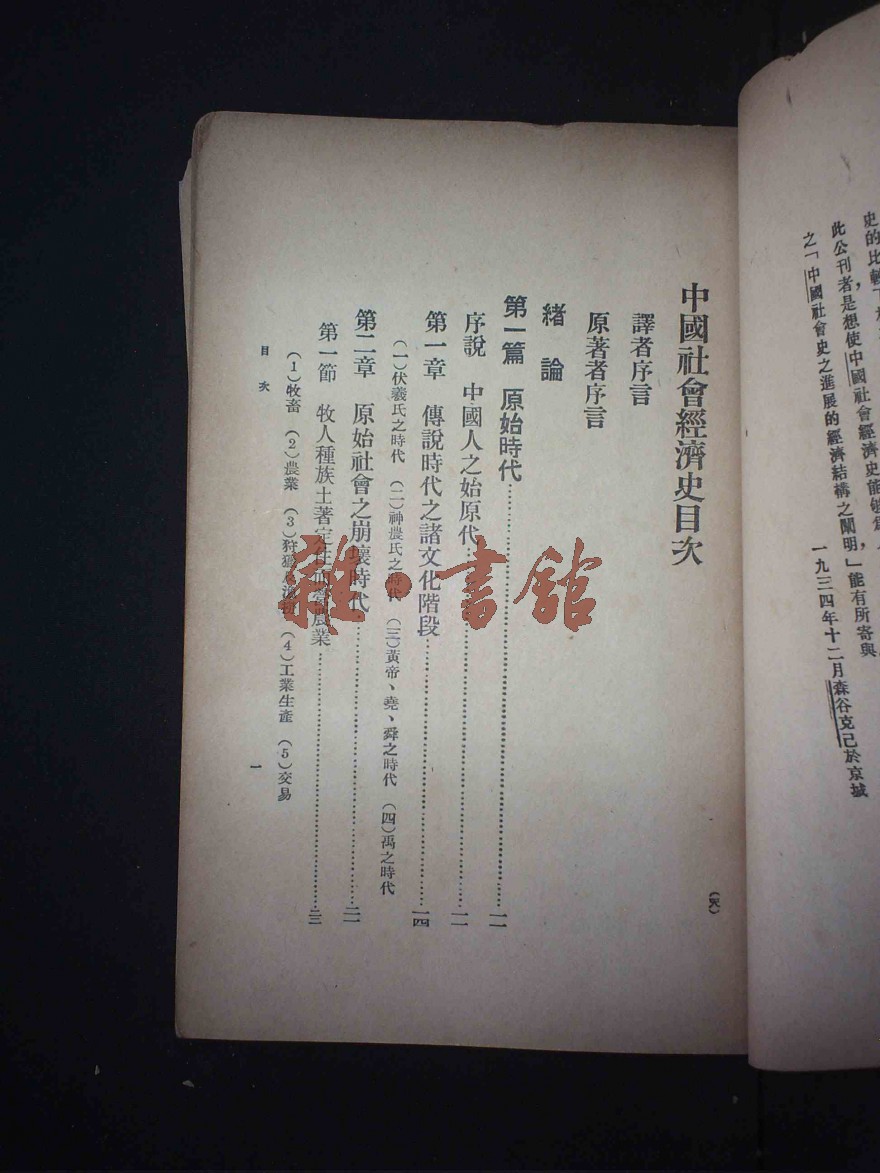 史的比較
此公刊者是想使中國社會經濟史能够爲
之「中國社會史之進展的經濟結構之闡明，」能有所寄與
一九三四年十二月森谷克己於京城
中國社會經濟史目次
譯者序言
原著者序言
緒論
第一篇 原始時代……一一
序說 中國人之始原代……一一
第一章 傳說時代之諸文化階段……一四
(一)伏羲氏之時代 (二)神農氏之時代 (三)黃帝、堯、舜之時代 (四)禹之時代
第二章 原始社會之崩壞時代……二一
第一節 牧人種族土著定住而營農業……二三
(1)牧畜 (2)農業 (3)狩獵及漁撈 (4)工業生產 (5)交易
目次
一
雜·書館